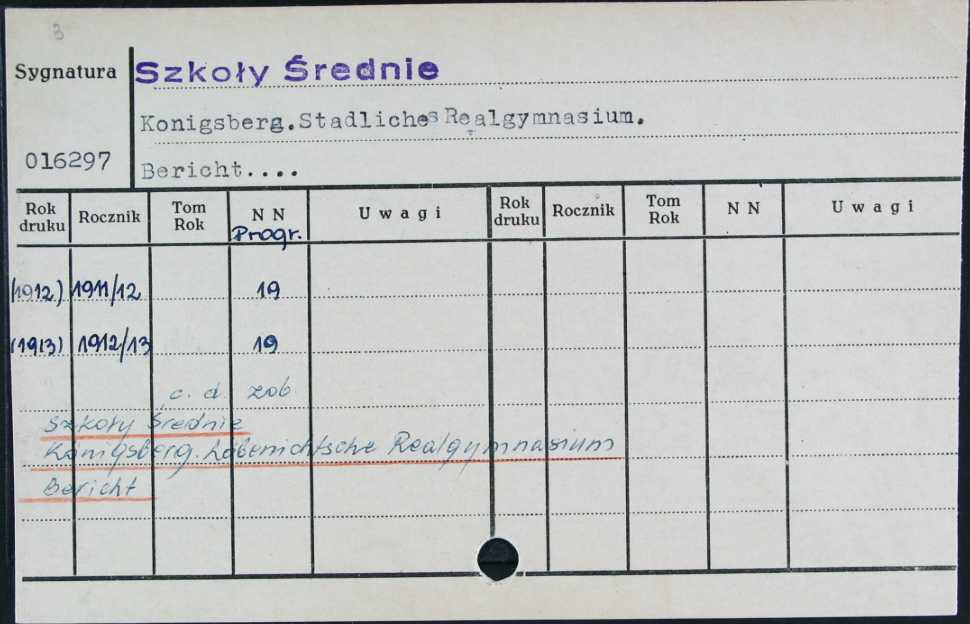 3
Sygnatura Szkoły Średnie
Konigsberg.Stadliches Realgymnasium.
016297 Bericht....
Rok druku Rocznik Tom Rok N N Uwagi Rok druku Rocznik Tom Rok N N Uwagi
Progr.
(1912) 1911/12 19
(1913) 1912/13 19
c. d. zob.
Szkoły Średnie
Königsberg. Löbenichtsche Realgymnasium
Bericht